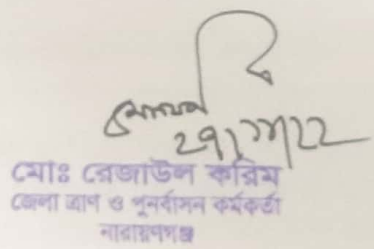 ২৭/১১/২২
মোঃ রেজাউল করিম
জেলা ত্রাণ ও পুনর্বাসন কর্মকর্তা
নারায়ণগঞ্জ